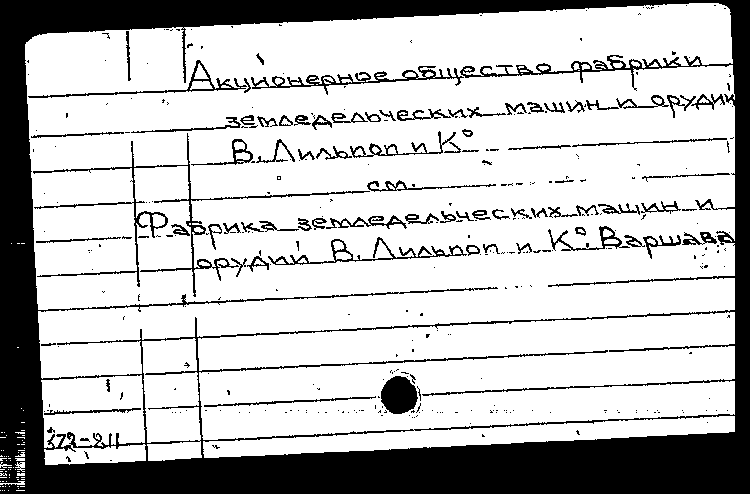 Акционерное общество фабрики
земледельческих машин и орудий
В. Лильпоп и К°
см.
Фабрика земледельческих машин и
орудий В. Лильпоп и К°. Варшава
372-211